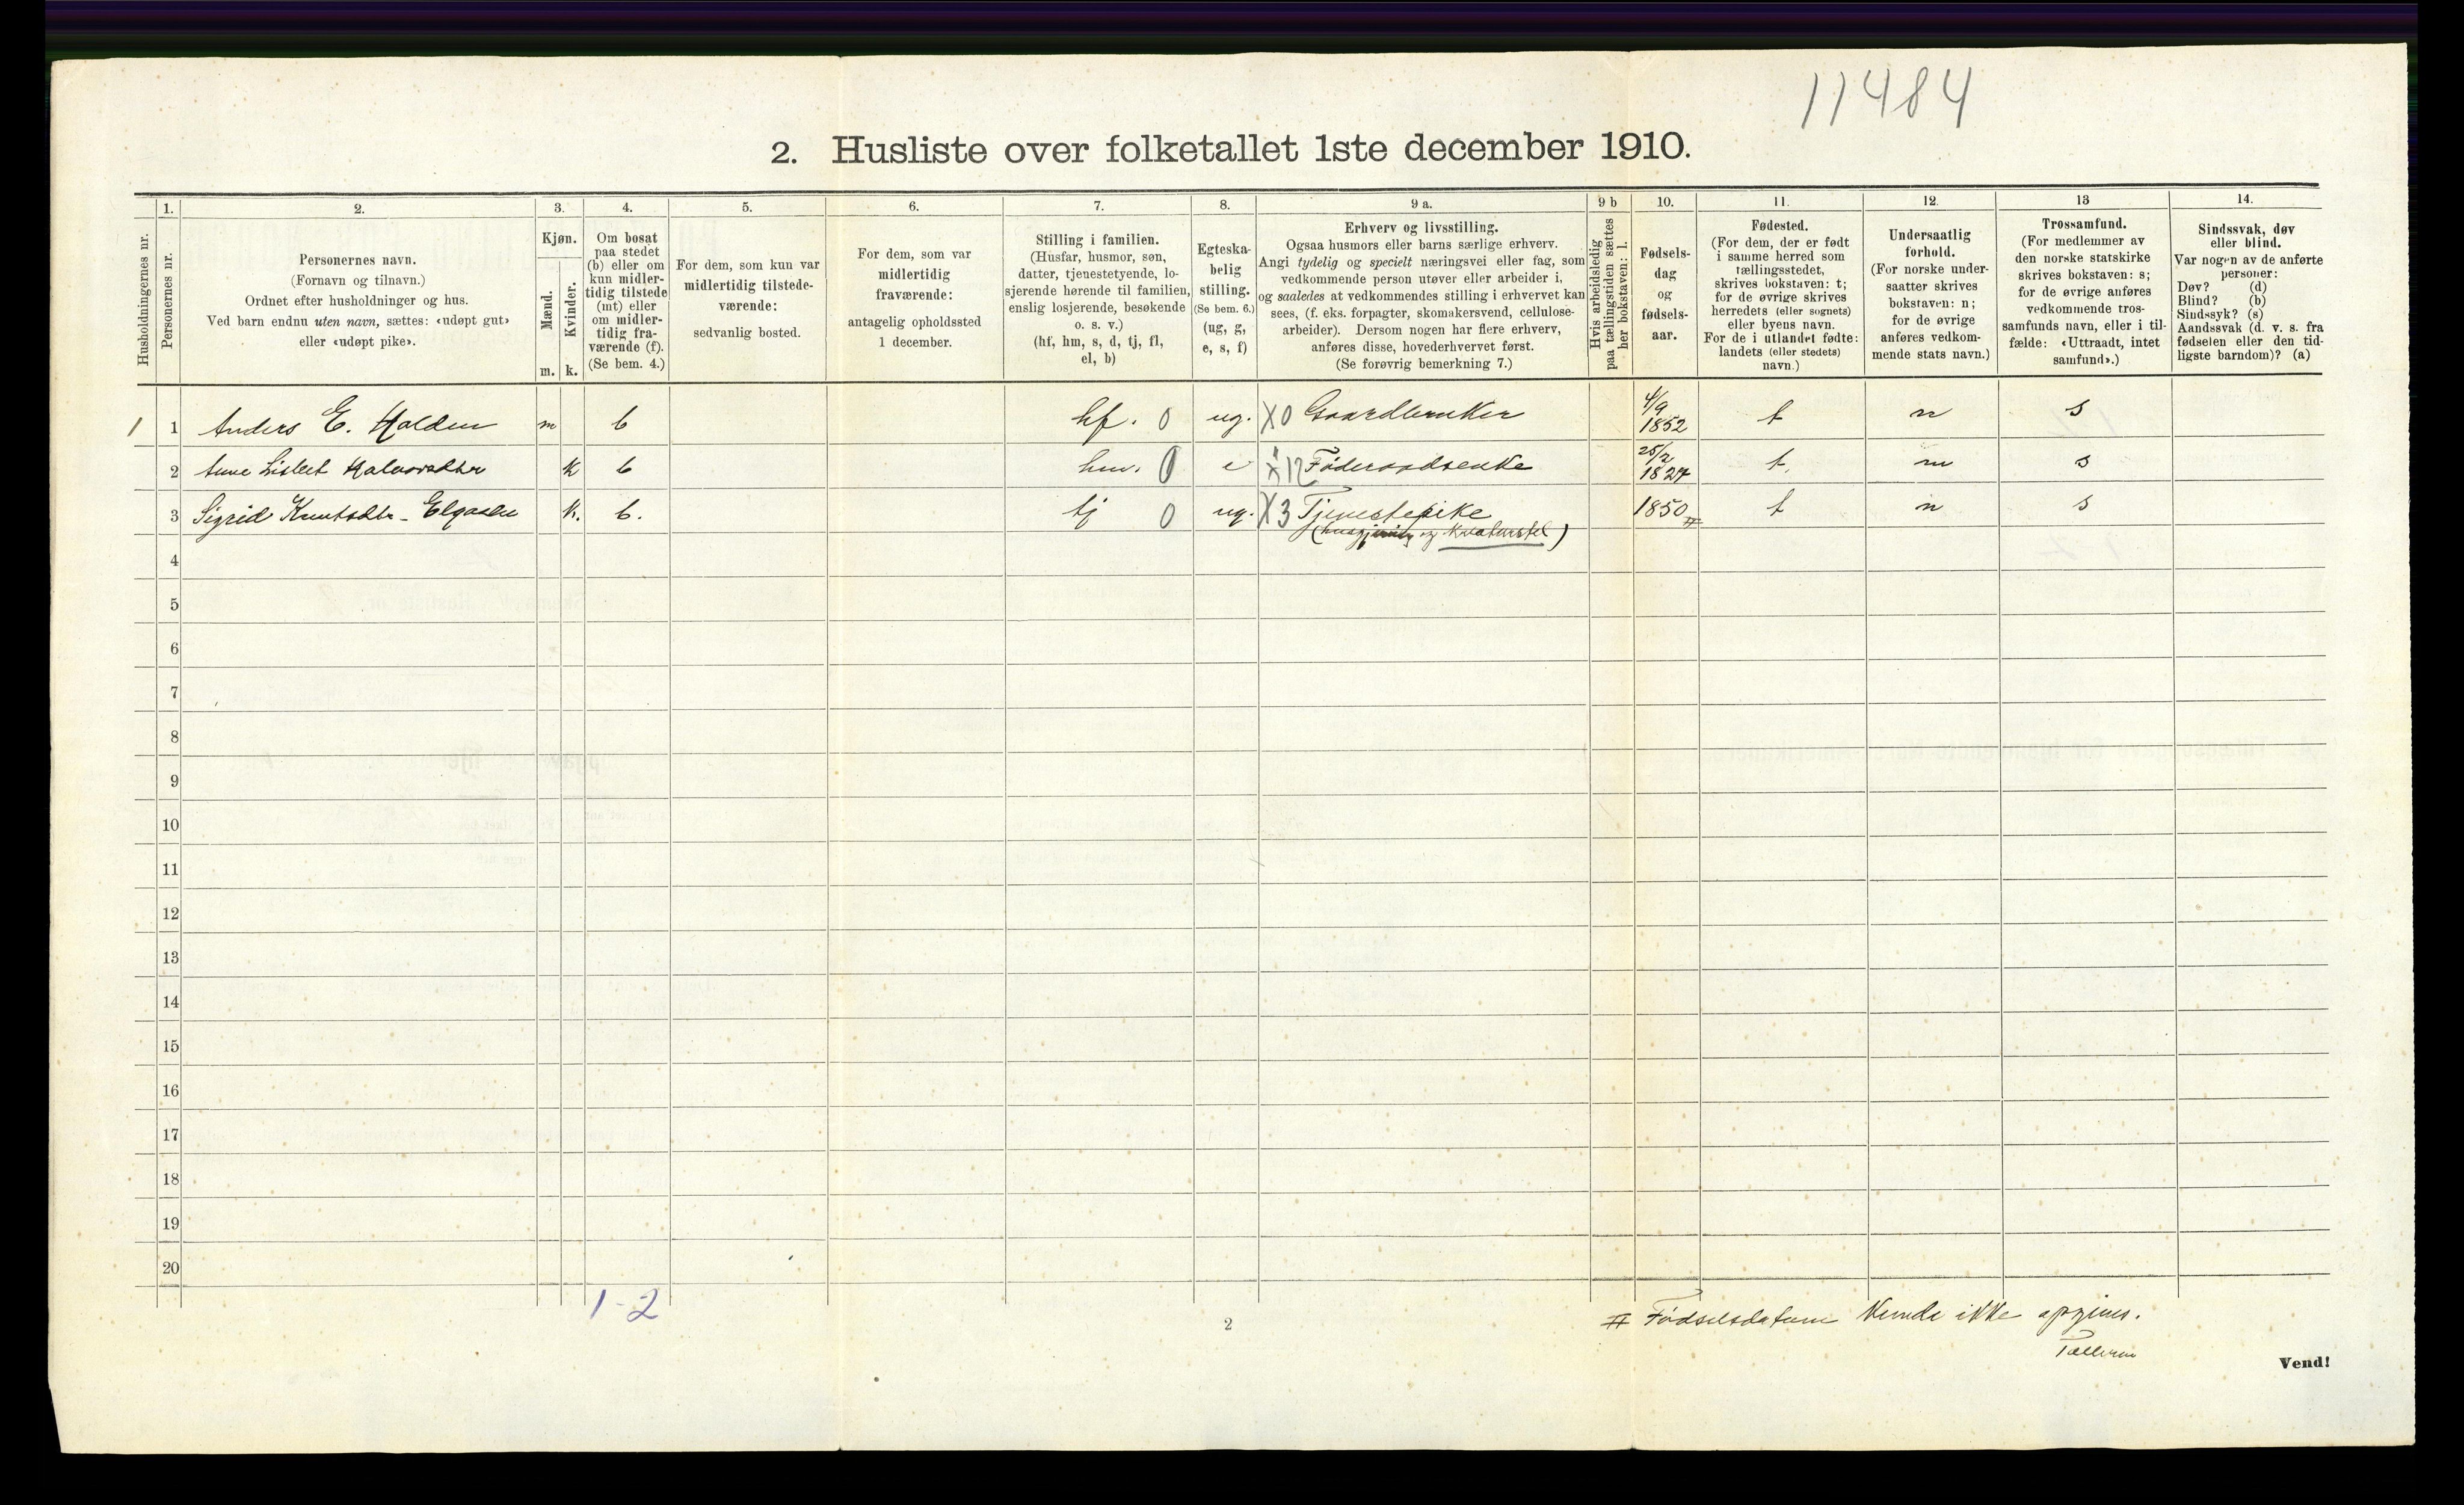 11484
2. Husliste over folketallet 1ste december 1910.
1. 2. 3. 4. 5. 6. 7. 8. 9 a. 9 b 10. 11. 12. 13 14.
Husholdningernes nr.
Personernes nr.
Personernes navn.
(Fornavn og tilnavn.)
Ordnet efter husholdninger og hus.
Ved barn endnu uten navn, sættes: «udøpt gut»
eller «udøpt pike».
Kjøn.
Mænd.
Kvinder.
m. k.
Om bosat
paa stedet
(b) eller om
kun midler-
tidig tilstede
(mt) eller
om midler-
tidig fra-
værende (f).
(Se bem. 4.)
For dem, som kun var
midlertidig tilstede-
værende:
sedvanlig bosted.
For dem, som var
midlertidig
fraværende:
antagelig opholdssted
1 december.
Stilling i familien.
(Husfar, husmor, søn,
datter, tjenestetyende, lo-
sjerende hørende til familien,
enslig losjerende, besøkende
o. s. v.)
(hf, hm, s, d, tj, fl,
el, b)
Egteska-
belig
stilling.
(Se bem. 6.)
(ug, g,
e, s, f)
Erhverv og livsstilling.
Ogsaa husmors eller barns særlige erhverv.
Angi tydelig og specielt næringsvei eller fag, som
vedkommende person utøver eller arbeider i,
og saaledes at vedkommendes stilling i erhvervet kan
sees, (f. eks. forpagter, skomakersvend, cellulose-
arbeider). Dersom nogen har flere erhverv,
anføres disse, hovederhvervet først.
(Se forøvrig bemerkning 7.)
Hvis arbeidsledig
paa tællingstiden sættes
her bokstaven: l.
Fødsels-
dag
og
fødsels-
aar.
Fødested.
(For dem, der er født
i samme herred som
tællingsstedet,
skrives bokstaven: t;
for de øvrige skrives
herredets (eller sognets)
eller byens navn.
For de i utlandet fødte:
landets (eller stedets)
navn.)
Undersaatlig
forhold.
(For norske under-
saatter skrives
bokstaven: n;
for de øvrige
anføres vedkom-
mende stats navn.)
Trossamfund.
(For medlemmer av
den norske statskirke
skrives bokstaven: s;
for de øvrige anføres
vedkommende tros-
samfunds navn, eller i til-
fælde: «Uttraadt, intet
samfund».)
Sindssvak, døv
eller blind.
Var nogen av de anførte
personer:
Døv? (d)
Blind? (b)
Sindssyk? (s)
Aandssvak (d. v. s. fra
fødselen eller den tid-
ligste barndom)? (a)
1 1 Anders E. Halden m b hf. 0 ug. X0 Gaardbruker 4/9 1852 t n s
2 Anne Lisbet Halvorsdtr k b hm. 0 e X12 Føderaadsenke 25/2 1827 t. n s
3 Sigrid Knutsdtr - k. b. tj 0 ug. X3 Tjenestepike 1850 # t n s
(husgjerning og kreaturstel)
4
5
6
7
8
9
10
11
12
13
14
15
16
17
18
19
20
1-2
2
# Fødselsdatum kunde ikke opgives.
Tælleren
Vend!